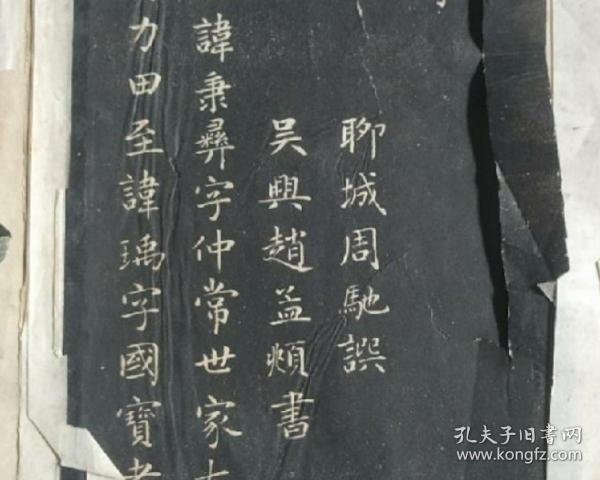 聊城周馳譔
吴興趙孟頫書
諱秉彝字仲常世家
力田至諱瑀字國寶
孔夫子旧书网
kongfz.com